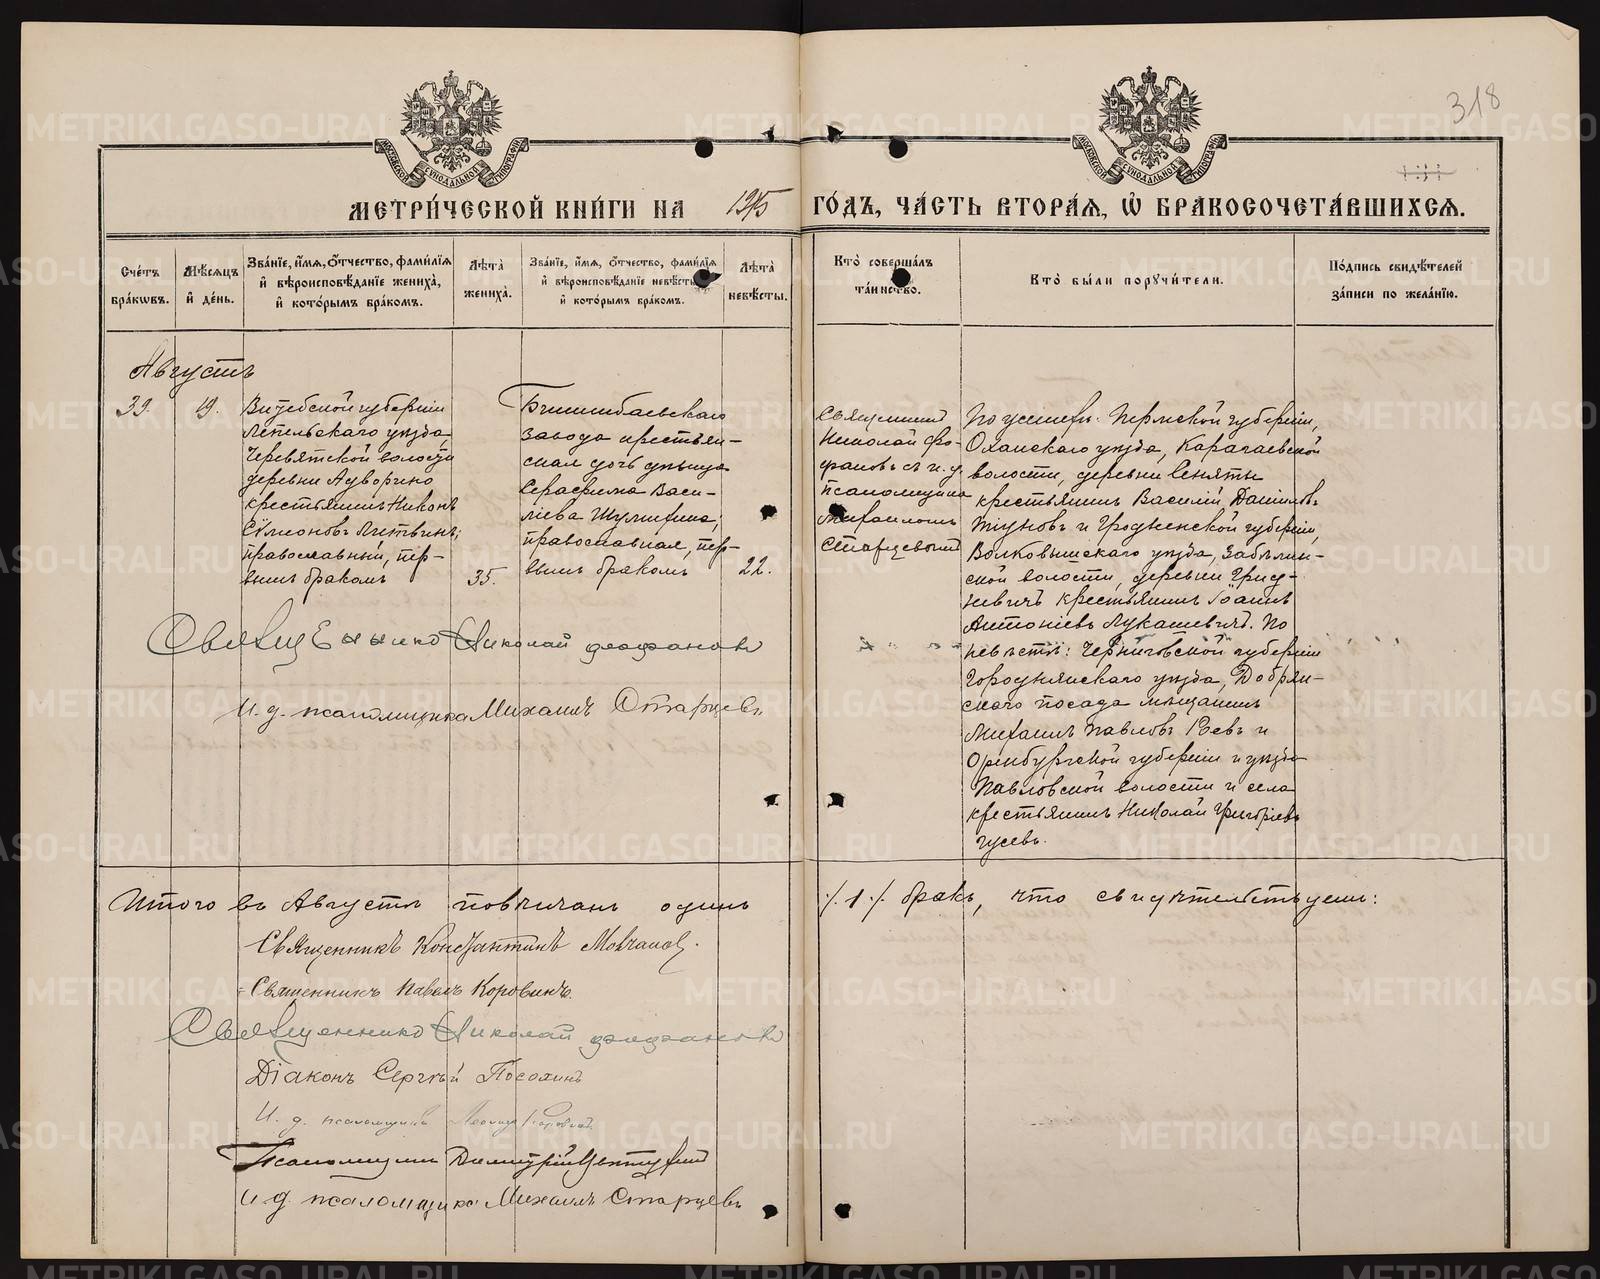 318
МОСКОВСКОЙ СѴНОДАЛЬНОЙ ТИПОГРАФІИ
МОСКОВСКОЙ СѴНОДАЛЬНОЙ ТИПОГРАФІИ
МЕТРИ́ЧЕСКОЙ КНИ́ГИ НА 1915 ГО́ДЪ, ЧА́СТЬ ВТОРА́Я, Ѽ БРАКОСОЧЕТА́ВШИХСЯ.
Сче́тъ бра́кѡвъ.
Мѣ́сяцъ и҆ де́нь.
Зва́нїе, и҆́мя, ѻ҆́тчество, фами́лїя и҆ вѣроисповѣ́данїе жениха̀, и҆ кото́рымъ бра́комъ.
Лѣ́та жениха̀.
Зва́нїе, и҆́мя, ѻ҆́тчество, фами́лїя и҆ вѣроисповѣ́данїе невѣ́сты и҆ кото́рымъ бра́комъ.
Лѣ́та невѣ́сты.
Кто̀ соверша́лъ та́инство.
Кто̀ бы́ли порꙋчи́тели.
По́дпись свидѣ́телей за́писи по жела́нїю.
Августъ
39.
19.
Витебской губерніи
Лепельскаго уѣзда
волости
деревни
крестьянинъ Никонъ
Сѵмоновъ Литвинъ;
православный, пер-
вымъ бракомъ
35.
Билимбаевскаго
завода крестьян-
ская дочь дѣвица
Серафима Васи-
ліева
православная, пер-
вымъ бракомъ
22.
Священникъ
Николай Фео-
фановъ съ и. д.
псаломщика
Михаиломъ
Старцевымъ
По женихѣ: Пермской губерніи,
Оханскаго уѣзда, Карагаевской
волости, деревни
крестьянинъ Василій Даниловъ
и Гродненской губерніи,
Волковышскаго уѣзда,
ской волости, деревни Грид-
невичъ крестьянинъ Іоаннъ
Антоніевъ Лукашевичъ. По
невѣстѣ: Черниговской губерніи
Городнянскаго уѣзда, Добрян-
скаго посада мѣщанинъ
Михаилъ Павловъ и
Оренбургской губерніи и уѣзда
Павловской волости и села
крестьянинъ Николай Григоріевъ
Гусевъ.
Священникъ Николай Феофановъ
И. д. псаломщика Михаилъ Старцевъ
Итого въ Августѣ повѣнчанъ одинъ ./. 1 ./. бракъ, что свидѣтельствуемъ:
Священникъ Константинъ Молчанов.
Священникъ Павелъ Коровинъ.
Священникъ Николай Феофановъ
Діаконъ Сергѣй Посохинъ
И. д. псаломщика
Псаломщикъ Димитрій
И. д. псаломщика Михаилъ Старцевъ
METRIKI.GASO-URAL.RU